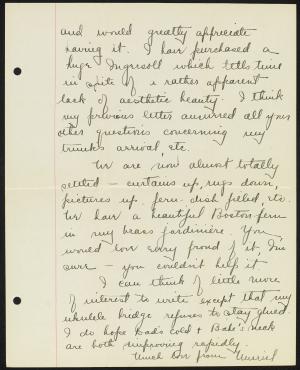 and would greatly appreciate
having it. I have purchased a
huge Ingersoll which tells time
in spite of a rather apparent
lack of aesthetic beauty. I think
my previous letter answered all your
other questions concerning my
trunks arrival, etc.
We are now almost totally
settled - curtains up, rugs down,
pictures up, fern-dish filled, etc.
We have a beautiful Boston fern
in my brass jardiniere. You
would love being proud of it, I'm
sure - you couldn't help it.
I can think of little more
of interest to write except that my
ukulele bridge refuses to stay glued.
I do hope Dad's cold + Babe's neck
are both improving rapidly.
Much love from Muriel